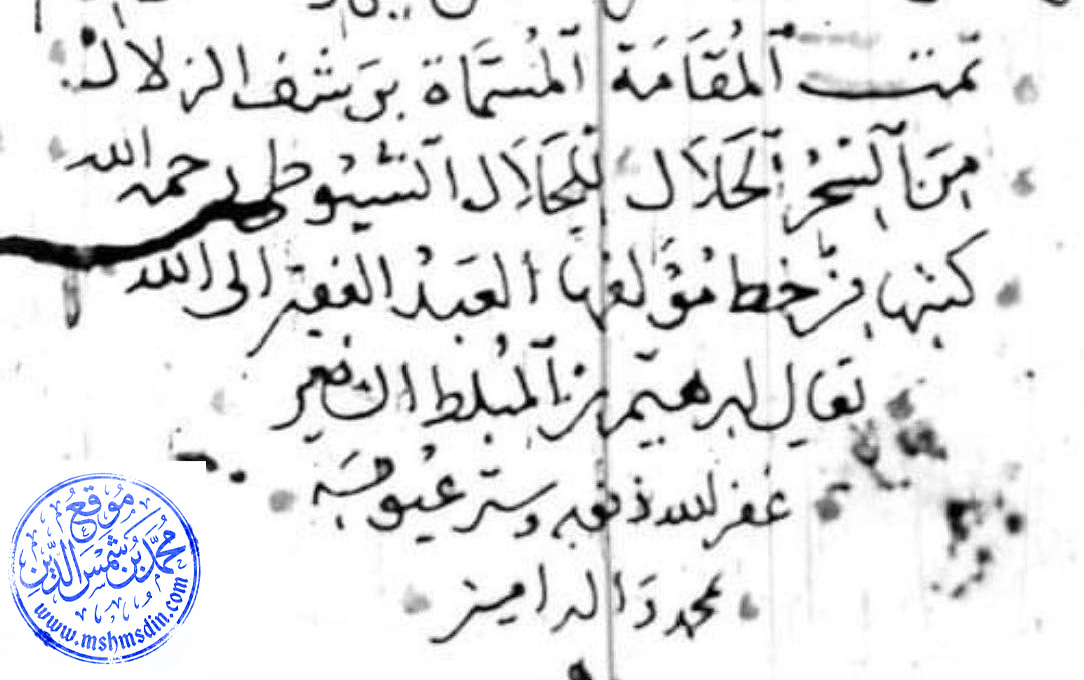 تمت المُقَامَة المُسَمَّاة برَشف الزلال
مِنَ السِحْرُ الحَلَال للجَلَال السُيُوطي رحمه الله
كتبها مِنْ خط مُؤَلفها العَبدُ الفقير الى الله
تعالى ابرهيم بن المبلط الشافعي
غفر الله ذنوبه وستر عيوبه
بمحمد وَاله امين
مَوقعُ
مُحمَّد بْن شَمْس الدِّين
www.mshmsdin.com